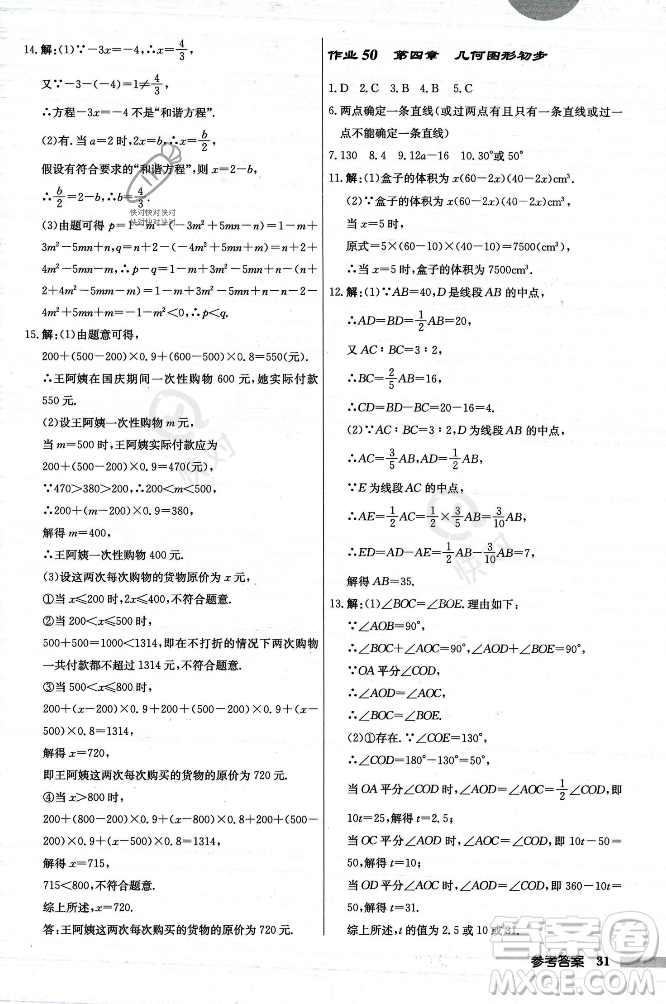 14.解:(1)∵-3x=-4,∴x=4/3,
又∵-3-(-4)=1≠4/3,
∴方程-3x=-4不是“和谐方程”.
(2)有.当a=2时,2x=b,∴x=b/2,
假设有符合要求的“和谐方程”,
∴b/2=2-b,∴b=4/3.
(3)由题可得p=1-m²-(-4m²+5mn-n)=1-m+
3m²-5mn+n,q=n+2-(-4m²+5mn+m)=n+2+
4m²-5mn-m,∴p-q=1-m+3m²-5mn+n-(n+
2+4m²-5mn-m)=-1-m²<0,∴p<q.
15.解:(1)由题意可得,
200+(500-200)×0.9+(600-500)×0.8=550(元).
∴王阿姨在国庆期间一次性购物600元,她实际付款
550元.
(2)设王阿姨一次性购物m元,
当m=500时,王阿姨实际付款应为
200+(500-200)×0.9=470(元).
∵470>380>200,∴200<m<500,
∴200+(m-200)×0.9=380,
解得m=400,
∴王阿姨一次性购物400元.
(3)设这两次每次购物的货物原价为x元,
①当x≤200时,不符合题意.
②当200<x≤500时,
500+500=1000<1314,即在不打折的情况下两次购物
一共付款都不超过1314元,不符合题意.
③当500<x≤800时,
200+(x-200)×0.9+200+(500-200)×0.9+(x-
500)×0.8=1314,
解得x=720,
即王阿姨这两次每次购买的货物的原价为720元.
④当x>800时,
200+(500-200)×0.9+(x-500)×0.8+200+
(500-200)×0.9+(x-500)×0.8=1314,
解得x=715,
715<800,不符合题意.
综上所述,x=720.
答:王阿姨这两次每次购买的货物的原价为720元.
快对快对快对
快对快对快对
作业50 第四章 几何图形初步
1.D 2.C 3.B 4.B 5.C
6.两点确定一条直线(或过两点有且只有一条直线;过
一点不能确定一条直线)
7.130 8.4 9.12a-16 10.30°或50°
11.解:(1)盒子的体积为x(60-2x)(40-2x)cm³.
(2)∵盒子的体积为x(60-2x)(40-2x)cm³,
当x=5时,
原式=5×(60-10)×(40-10)=7500(cm³)
∴当x=5时,盒子的体积为7500cm³.
12.解:(1)∵AB=40,D是线段AB的中点,
∴AD=BD=1/2AB=20,
又AC∶BC=3∶2,
∴BC=2/5AB=16,
∴CD=BD-BC=20-16=4.
(2)∵AC∶BC=3∶2,D为线段AB的中点,
∴AC=3/5AB,AD=1/2AB,
∵E为线段AC的中点,
∴AE=1/2AC=1/2×3/5AB=3/10AB,
∴ED=AD-AE=1/2AB-3/10AB=7,
解得AB=35.
13.解:(1)∠BOC=∠BOE.理由如下:
∵∠AOB=90°,
∴∠BOC+∠AOC=90°,∠AOD+∠BOE=90°,
∵OA平分∠COD,
∴∠AOD=∠AOC,
∴∠BOC=∠BOE.
(2)①存在.∵∠COE=130°,
∴∠COD=180°-130°=50°,
当OA平分∠COD时,∠AOD=∠AOC=1/2∠COD,即
10t=25,解得t=2.5;
当OC平分∠AOD时,∠AOC=∠COD,即10t-50=
50,解得t=10;
当OD平分∠AOC时,∠AOD=∠COD,即360-10t=
50,解得t=31.
综上所述,t的值为2.5或10或31.
参考答案 31
快对
快对
答案圈
MXQE.COM